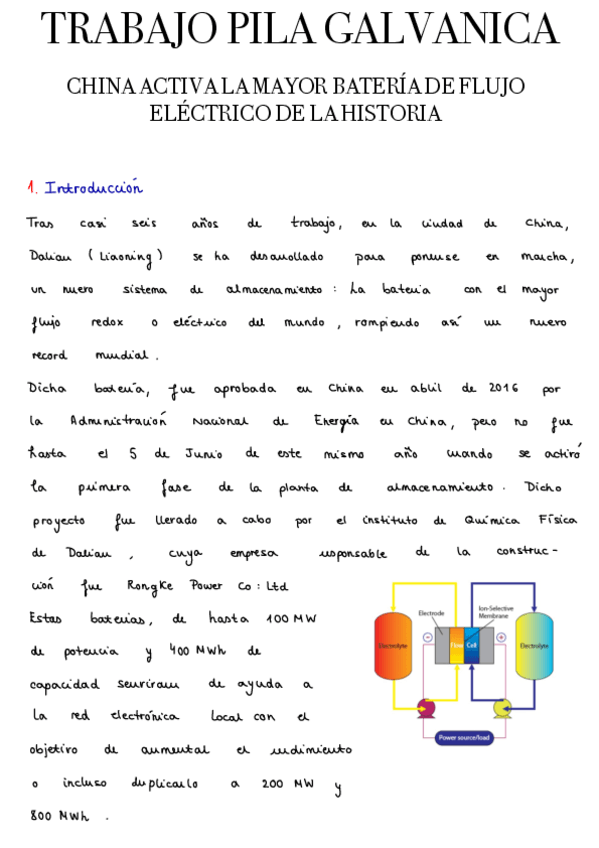 TRABAJO PILA GALVANICA
CHINA ACTIVA LA MAYOR BATERÍA DE FLUJO
ELÉCTRICO DE LA HISTORIA
1. Introducción
Tras casi seis años de trabajo, en la ciudad de China,
Dalian (Liaoning) se ha desarrollado para ponerse en marcha,
un nuevo sistema de almacenamiento: La bateria con el mayor
flujo redox o eléctrico del mundo, rompiendo así un nuevo
record mundial.
Dicha batería, fue aprobada en China en abril de 2016 por
la Administración Nacional de Energía en China, pero no fue
hasta el 5 de Junio de este mismo año cuando se activó
la primera fase de la planta de almacenamiento. Dicho
proyecto fue llevado a cabo por el instituto de Química Física
de Dalian, cuya empresa responsable de la construc-
ción fue Rongke Power Co: Ltd
Estas baterias, de hasta 100 MW
de potencia y 400 MWh de
capacidad serviram de ayuda a
la red electrónica local con el
objetivo de aumentar el rendimiento
o incluso duplicarlo a 200 MW y
800 MWh.
Electrode
Ion-Selective
Membrane
Electrolyte
Flow Cell
Electrolyte
Power source/load